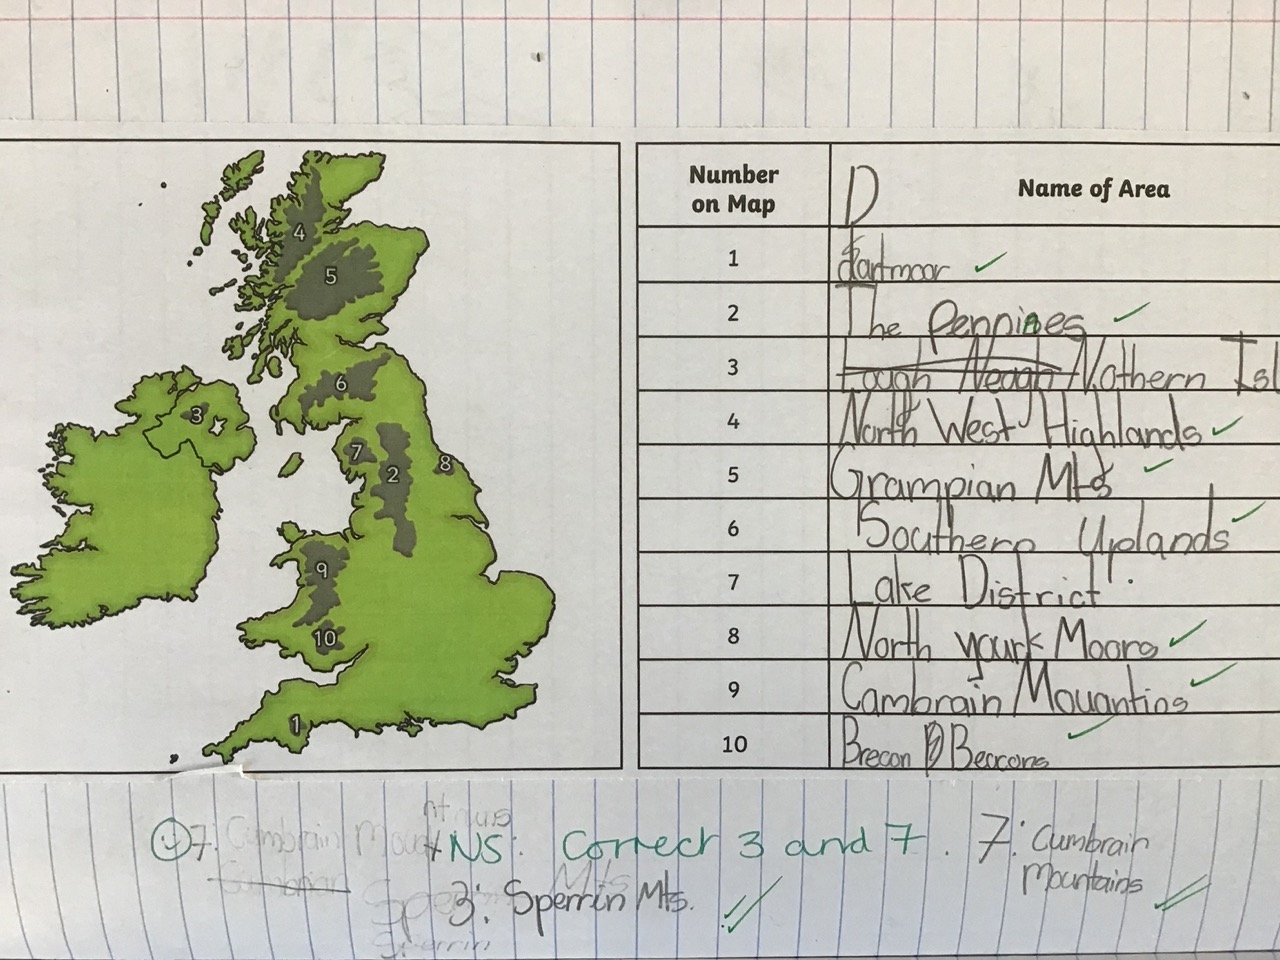 4
5
6
3
7
2
8
9
10
1
Number on Map
D
Name of Area
1 dartmoor ✓
2 The Pennines ✓
3 Lough Neagh Nothern Isl
4 North West Highlands ✓
5 Grampian Mts ✓
6 Southern Uplands ✓
7 Lake District .
8 North yourk Moors ✓
9 Cambrain Mouantins ✓
10 Brecon Beacons ✓
7: Cumbrain Mount
NS: Correct 3 and 7.
7: Cumbrain
Mountains
Cumbrian
3: Sperrin Mts.
Sperrin